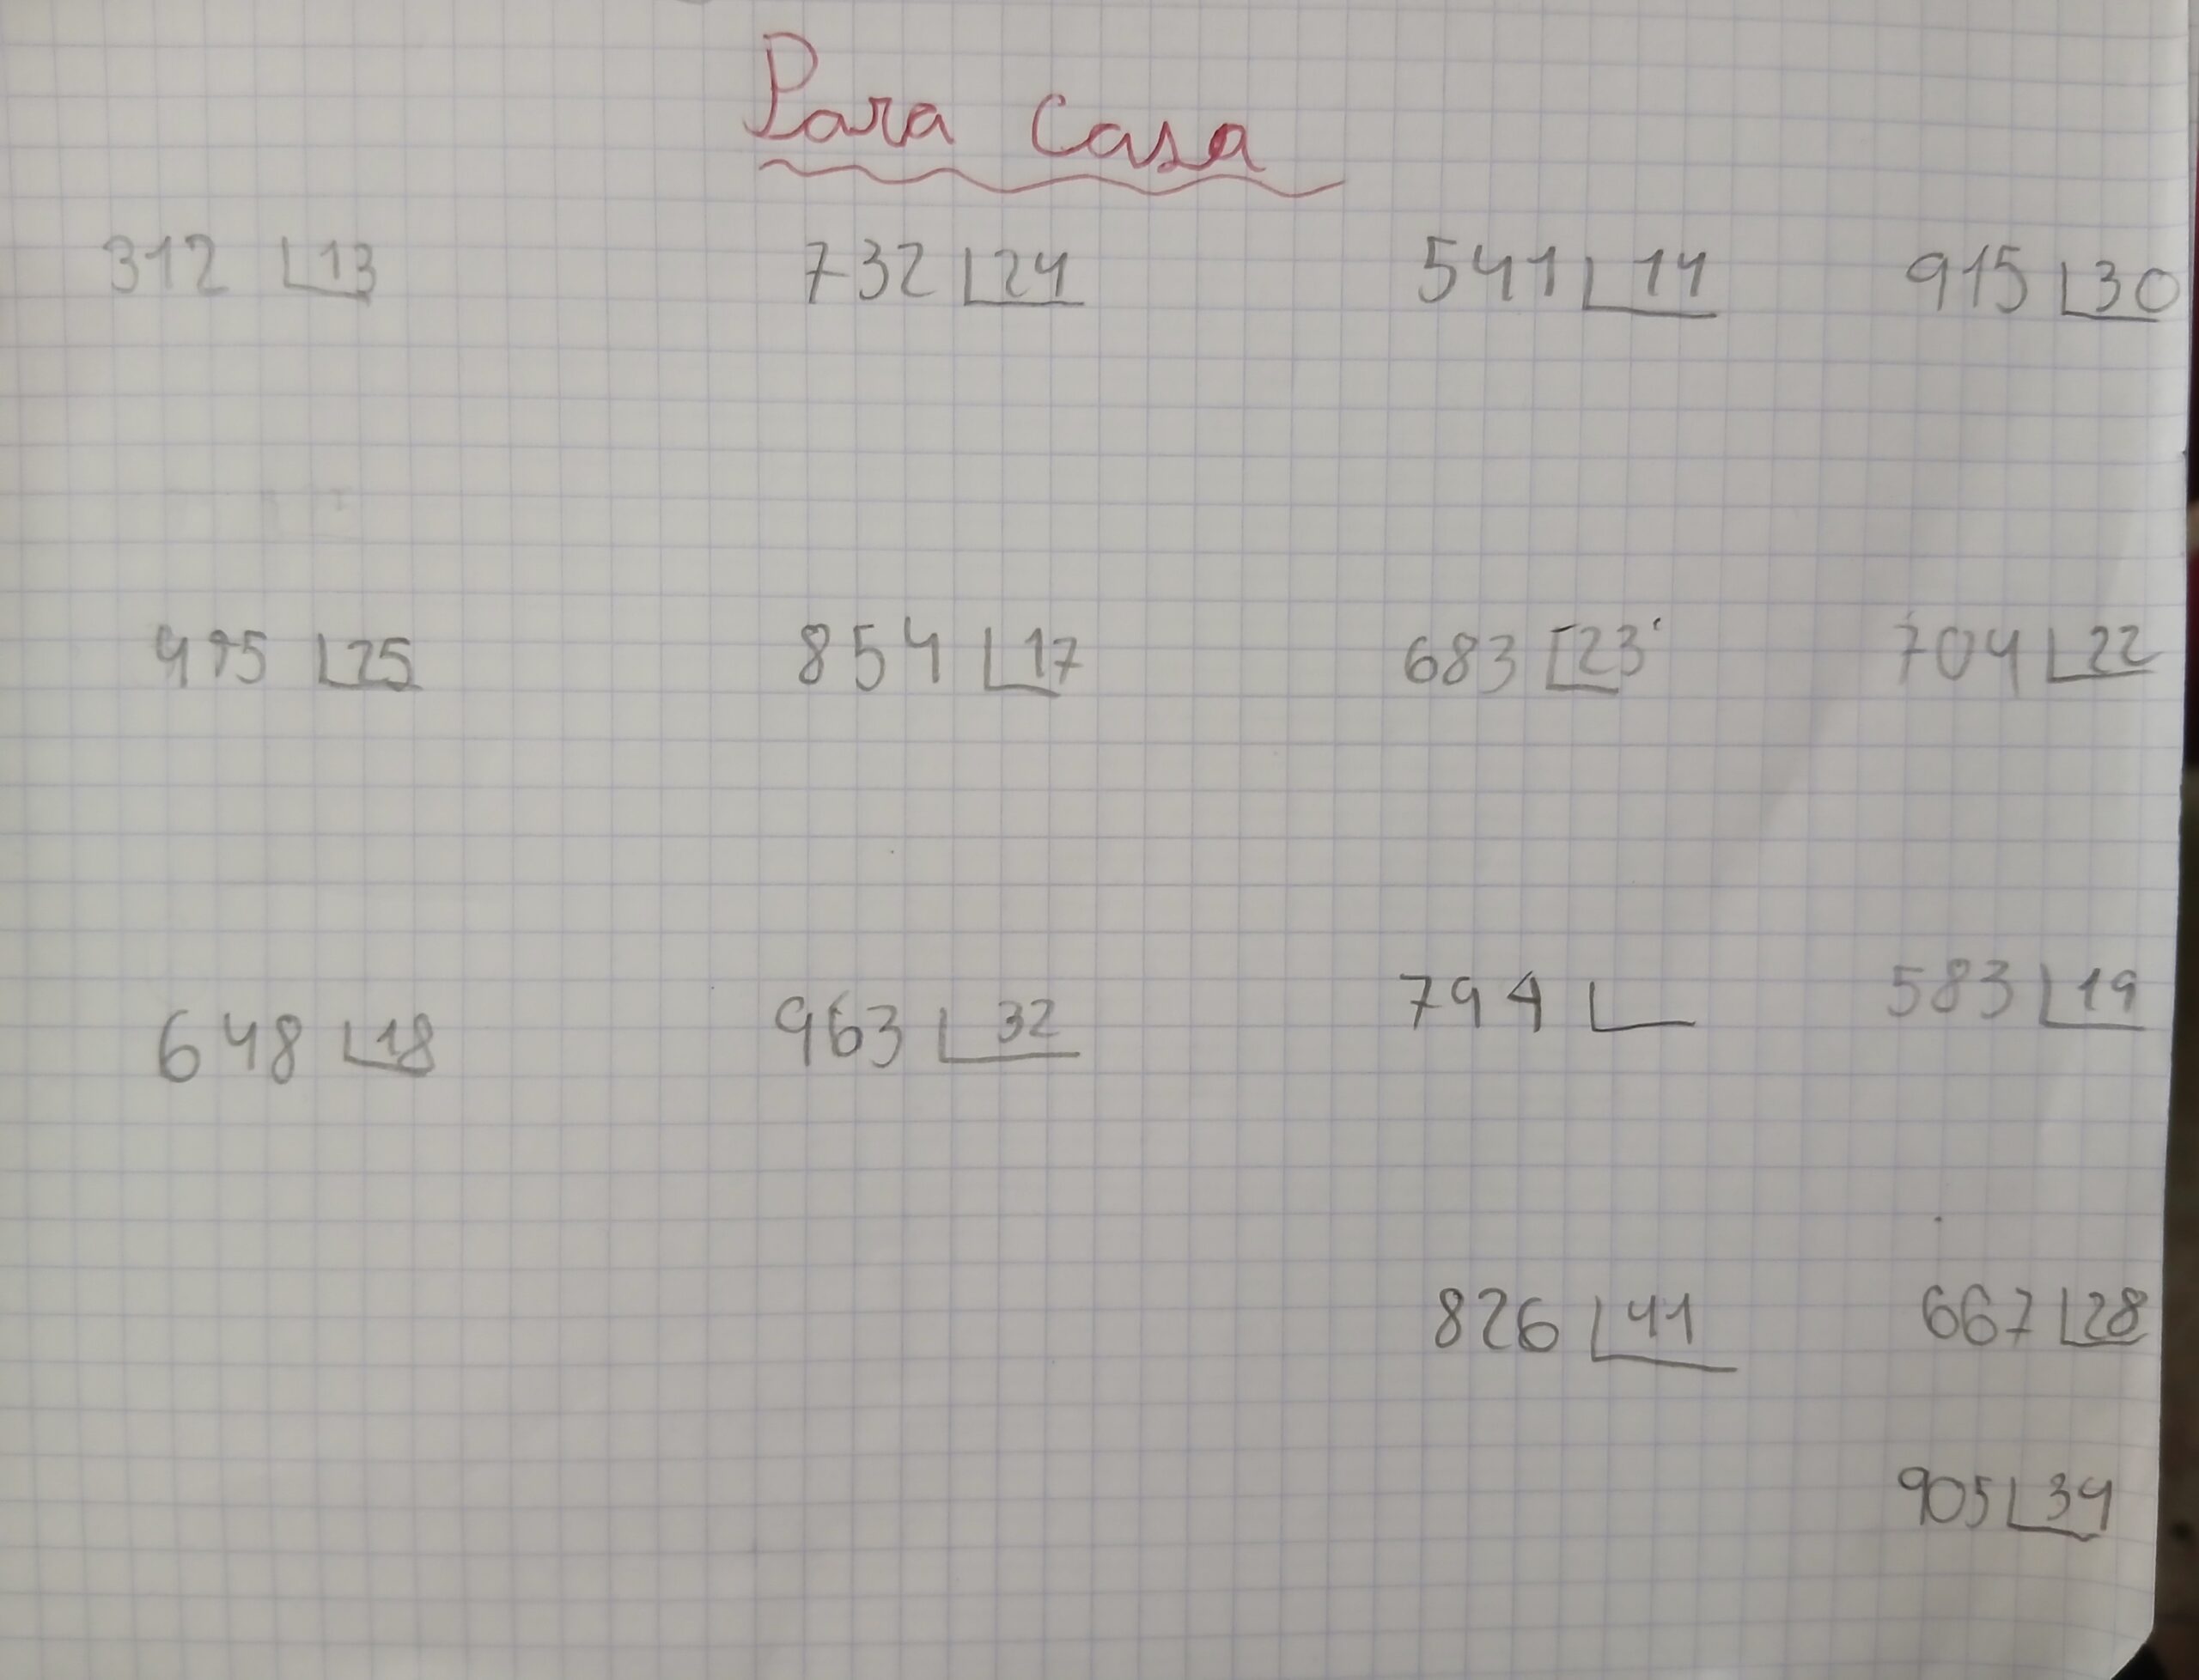 Para Casa
312 13 732 24 541 14 915 30
495 25 854 17 683 23 704 22
648 18 963 32 794 583 19
826 41 667 28
905 34